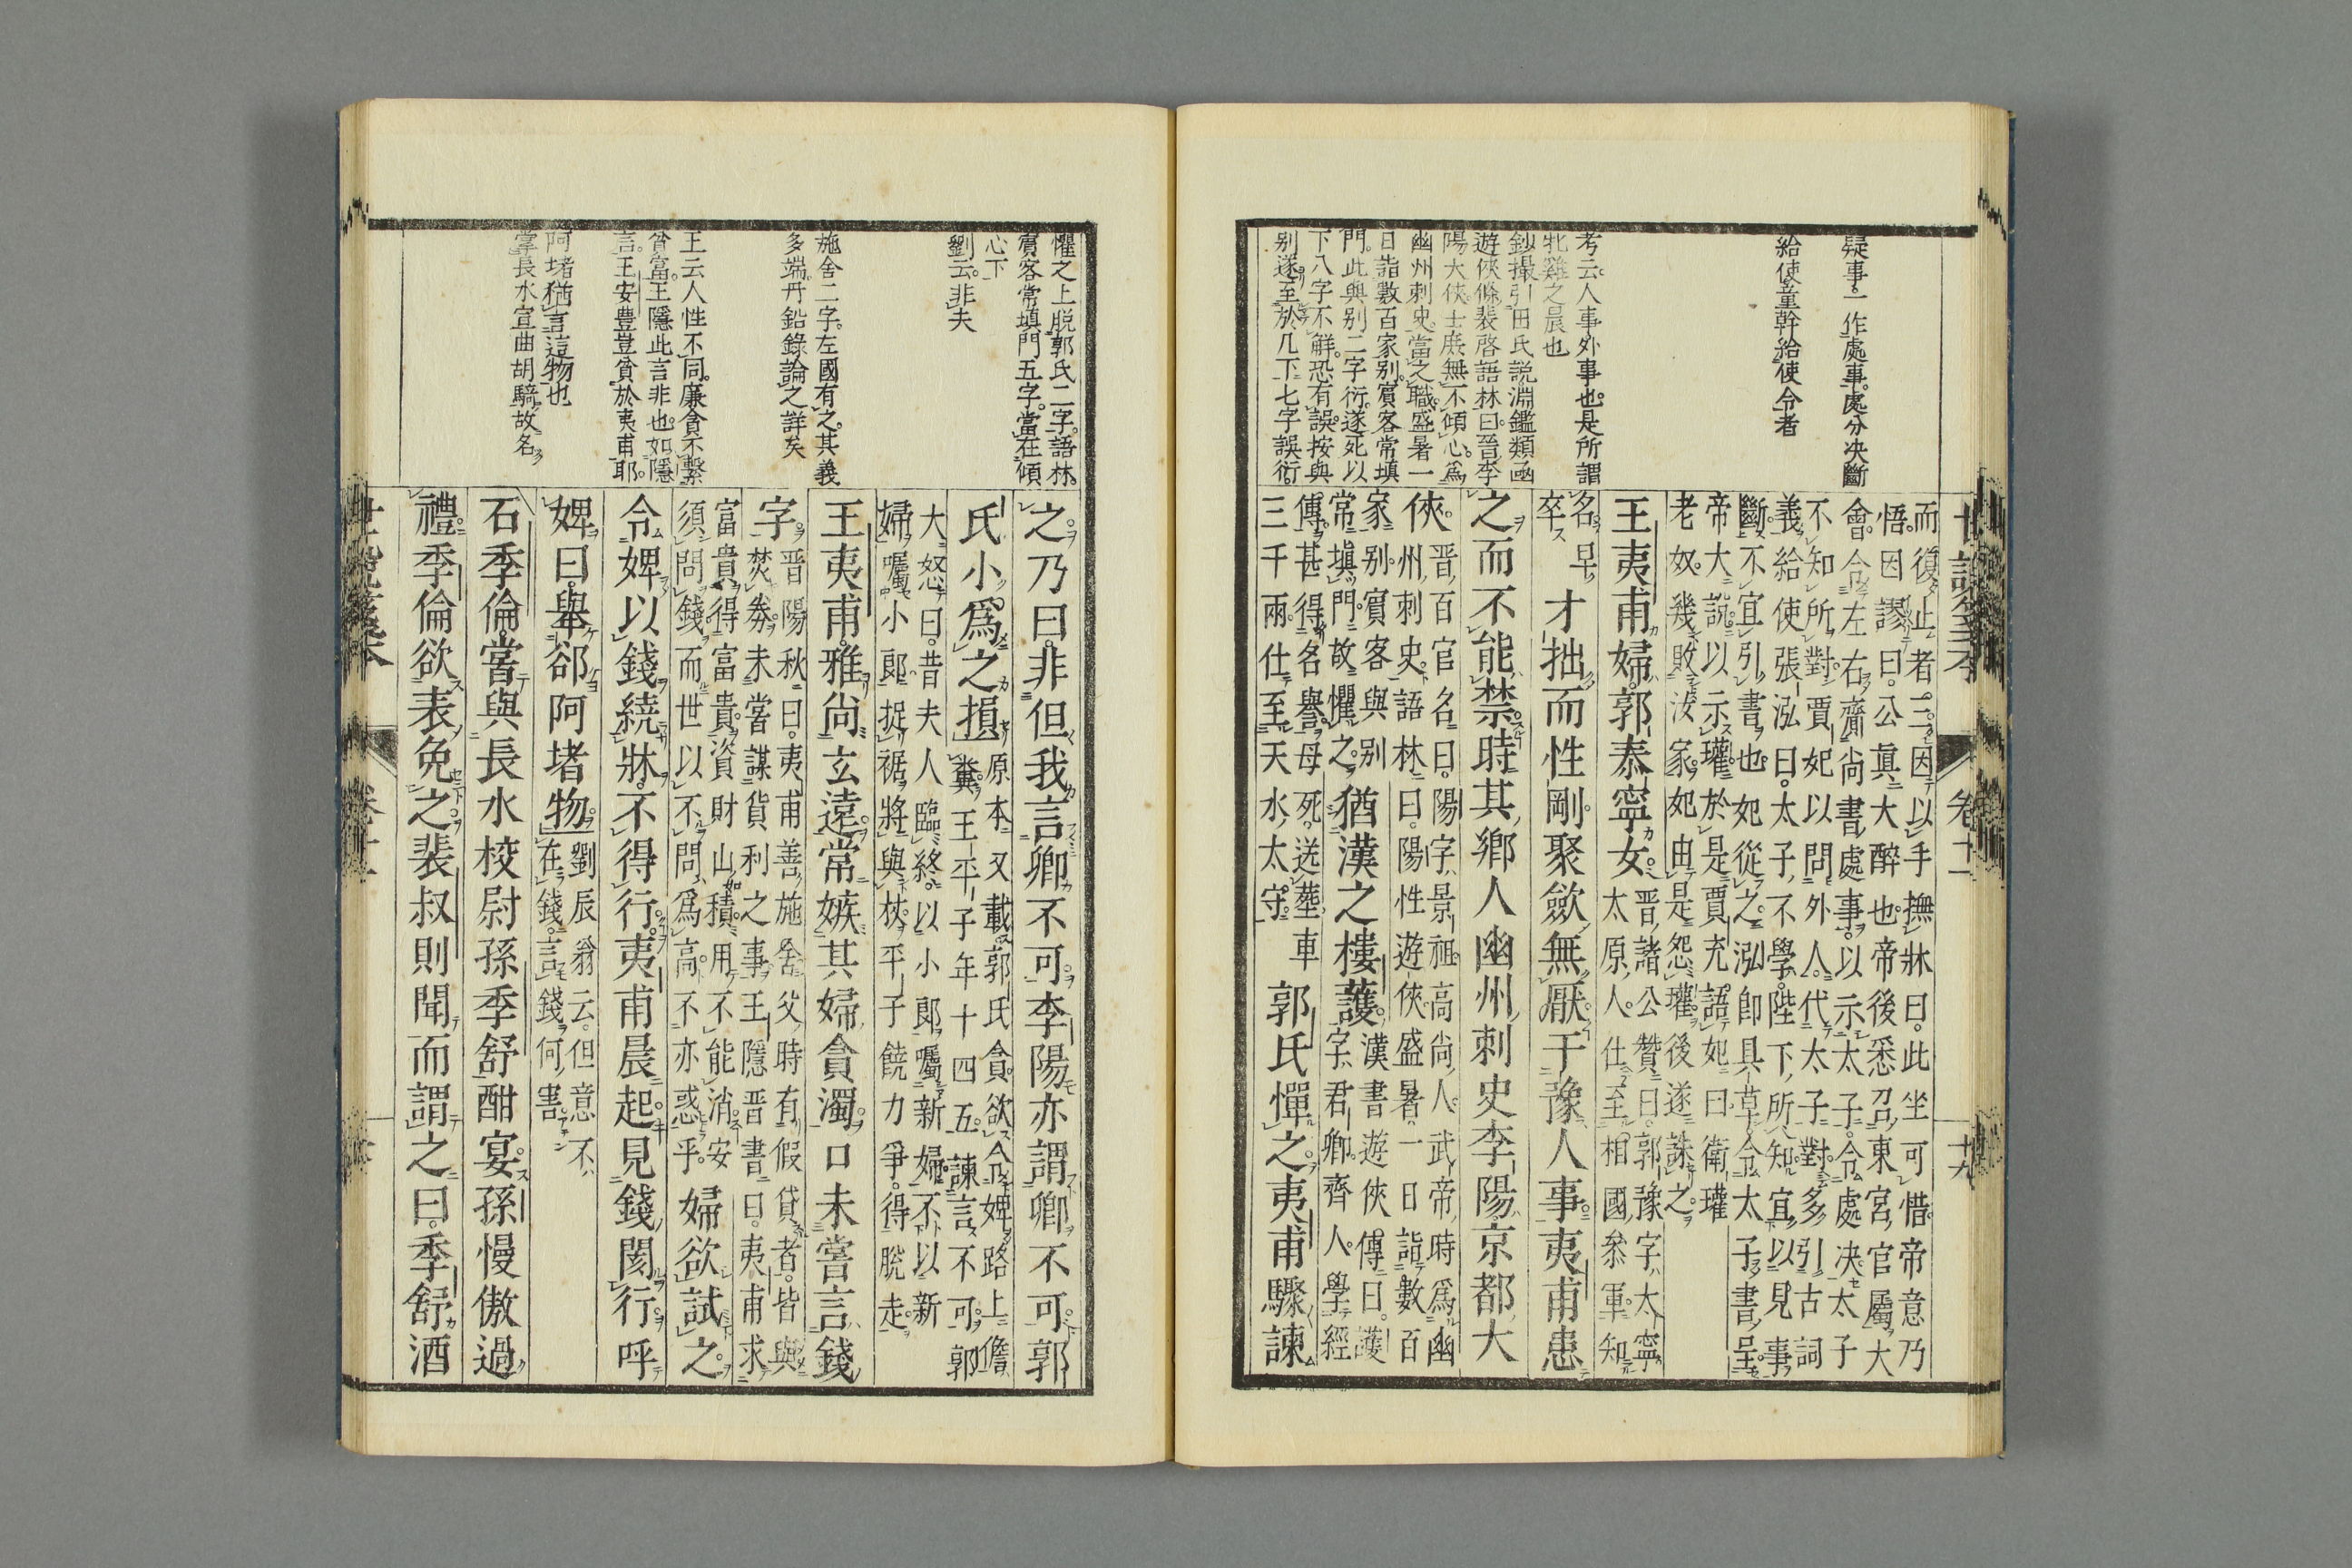 疑事。一作處事。處分決斷
給使童幹給使令者
考云。人事外事也。是所謂
牝雞之晨也
鈔撮引田氏説淵鑑類函
遊俠條裴啓語林曰。晉李
陽大俠士庶無不傾心。爲
幽州刺史。當之職。盛暑一
日詣數百家別。賓客常填
門。此與別二字衍。遂死以
下八字不解。恐有誤。按與
別遂至於几下七字誤衍。
而復止者三。因以手撫牀曰。此坐可惜。帝意乃
悟。因謬曰。公眞大醉也。帝後悉召東宮官屬大
會。令左右齎尚書處事。以示太子。令處決。太子
不知所對。賈妃以問外人。代太子對。多引古詞
義。給使張泓曰。太子不學。陛下所知。宜以見事
斷。不宜引書也。妃從之。泓卽具草令太子書呈
帝大説。以示瓘。於是賈充語妃曰。衛瓘
老奴。幾敗汝家。妃由是怨瓘。後遂誅之
王夷甫婦。郭泰寧女。
晉諸公贊曰。郭豫字太寧
太原人。仕至相國參軍。知
名早
卒
才拙而性剛。聚斂無厭。干豫人事。夷甫患
之而不能禁。時其鄉人幽州刺史李陽。京都大
俠。
晉百官名曰。陽字景祖。高尚人。武帝時爲幽
州刺史。語林曰。陽性遊俠。盛暑一日詣數百
家別。賓客與別
常填門。故懼之。
猶漢之樓護。
漢書遊俠傳曰。護
字君卿。齊人。學經
傳。甚得名譽。母死。送葬車
三千兩。仕至天水太守。
郭氏憚之。夷甫驟諫
世説箋本
卷十一
十九
懼之上脱郭氏二字。語林。
賓客常填門五字。當在傾
心下
劉云。非夫
施舍二字。左國有之。其義
多端。丹鉛錄論之詳矣
王云人性不同。廉貪不繫
貧富。王隱此言非也。如隱
言。王安豊豈貧於夷甫耶。
阿堵猶言這物也
掌長水宣曲胡騎。故名
之。乃曰。非但我言卿不可。李陽亦謂卿不可。郭
氏小爲之損。
原本又載。郭氏貪欲。令婢路上儋
糞。王平子年十四五。諫言不可。郭
大怒曰。昔夫人臨終。以小郞囑新婦。不以新
婦囑小郞。捉裾將與杖。平子饒力爭。得脱走。
王夷甫。雅尚玄遠。常嫉其婦貪濁。口未嘗言錢
字。
晉陽秋曰。夷甫善施舍。父時有假貸者。皆與
焚券。未嘗謀貨利之事。王隱晉書曰。夷甫求
富貴得富貴。資財山積。用不能消。安
須問錢。而世以不問爲高。不亦惑乎。
婦欲試之
令婢以錢繞牀。不得行。夷甫晨起。見錢閡行。呼
婢曰。舉郤阿堵物。
劉辰翁云。但意不
在錢。言錢何害。
石季倫。嘗與長水校尉孫季舒酣宴。孫慢傲過
禮。季倫欲表免之。裴叔則聞而謂之曰。季舒酒
世説箋本
卷十一